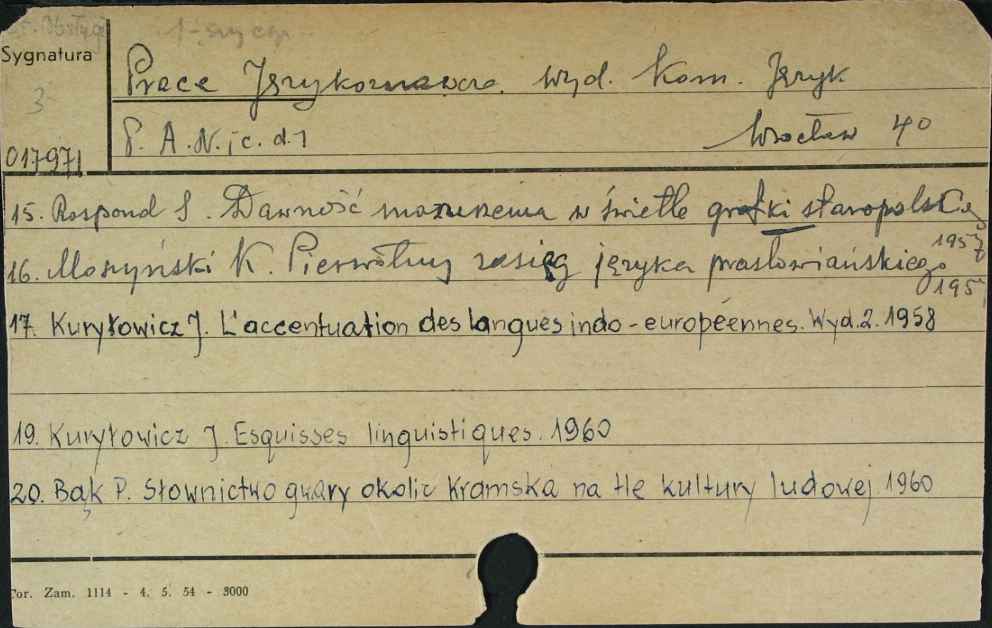 Sygnatura
3
017971
Prace Językoznawcze. Wyd. Kom. Język
P. A. N. ; c. d. 1
Wrocław 4º
15. Rospond S. Dawność mazurzenia w świetle grafiki staropolskiej
1957
16. Moszyński K. Pierwotny zasięg języka prasłowiańskiego
195
17. Kuryłowicz J. L'accentuation des langues indo-européennes. Wyd. 2. 1958
19. Kuryłowicz J. Esquisses linguistiques. 1960
20. Bąk P. Słownictwo gwary okolic Kramska na tle kultury ludowej 1960
Tor. Zam. 1114 - 4. 5. 54 - 3000